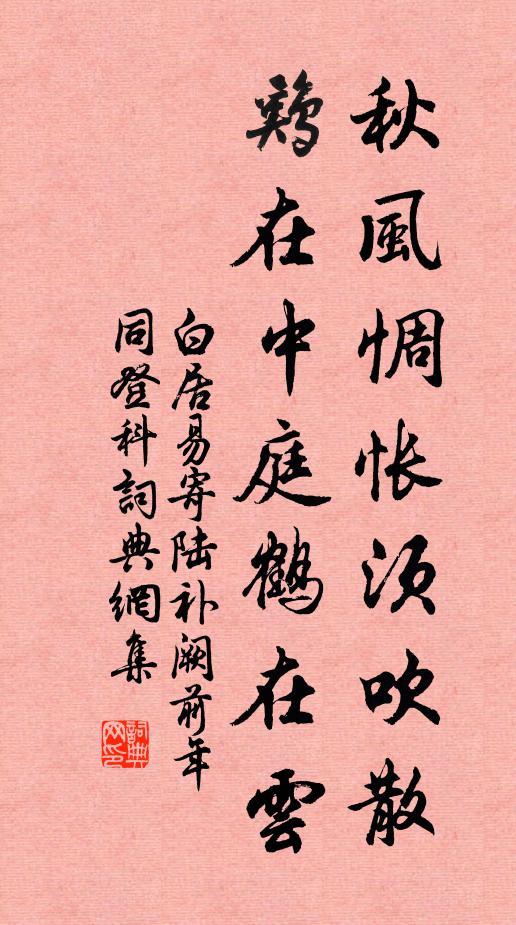 秋風惆悵須吹散
鷄在中庭鶴在雲
白居易寄陆补阙前年
同登科詞典網集
詞典
网印